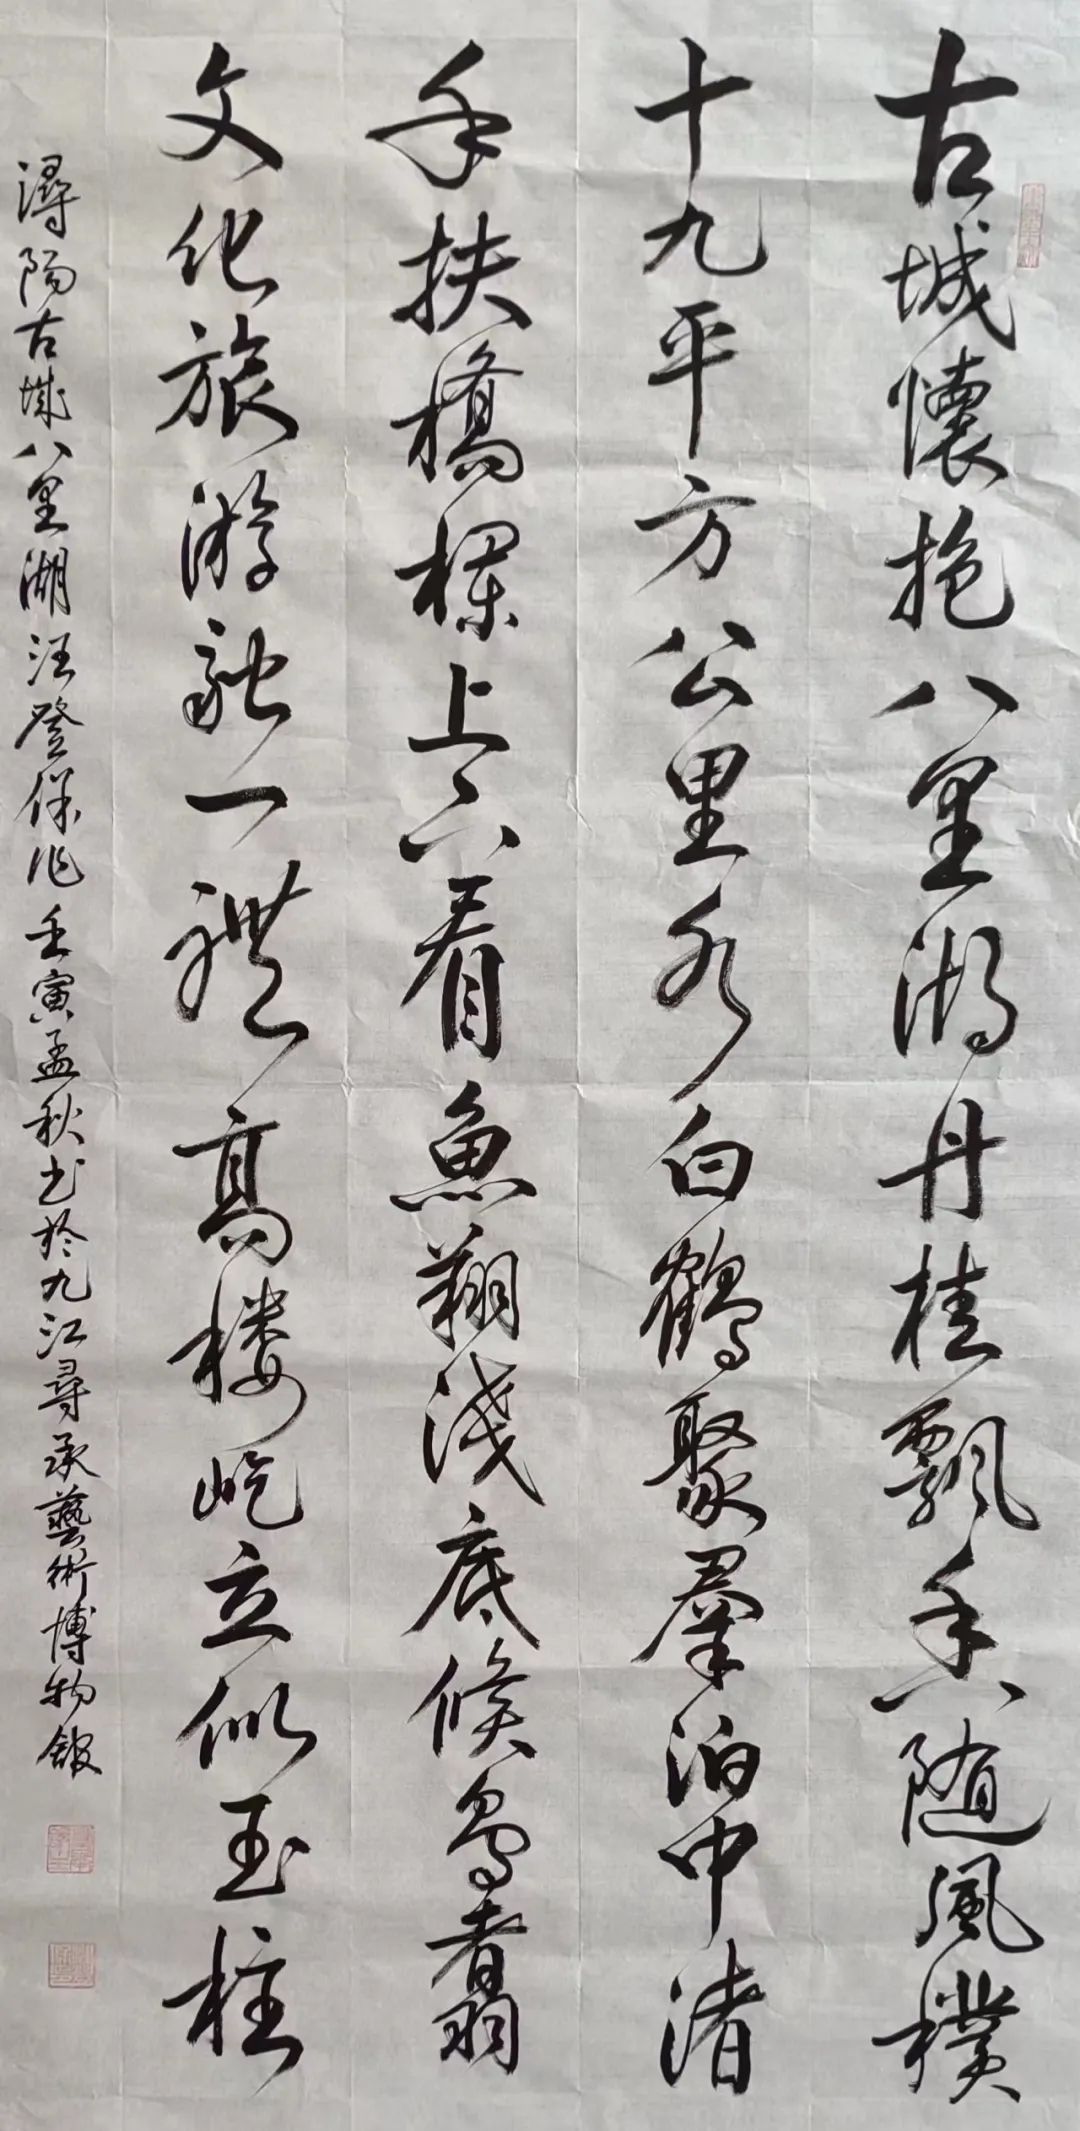 古城懷抱八里湖丹桂飘香随風樸
十九平方公里水白鶴聚羣泊中渚
手扶橋欄上下看魚翔淺底候鸟翥
文化旅游融一體高楼屹立似玉柱
潯陽古城八里湖汪登保作壬寅孟秋书於九江尋承藝術博物館